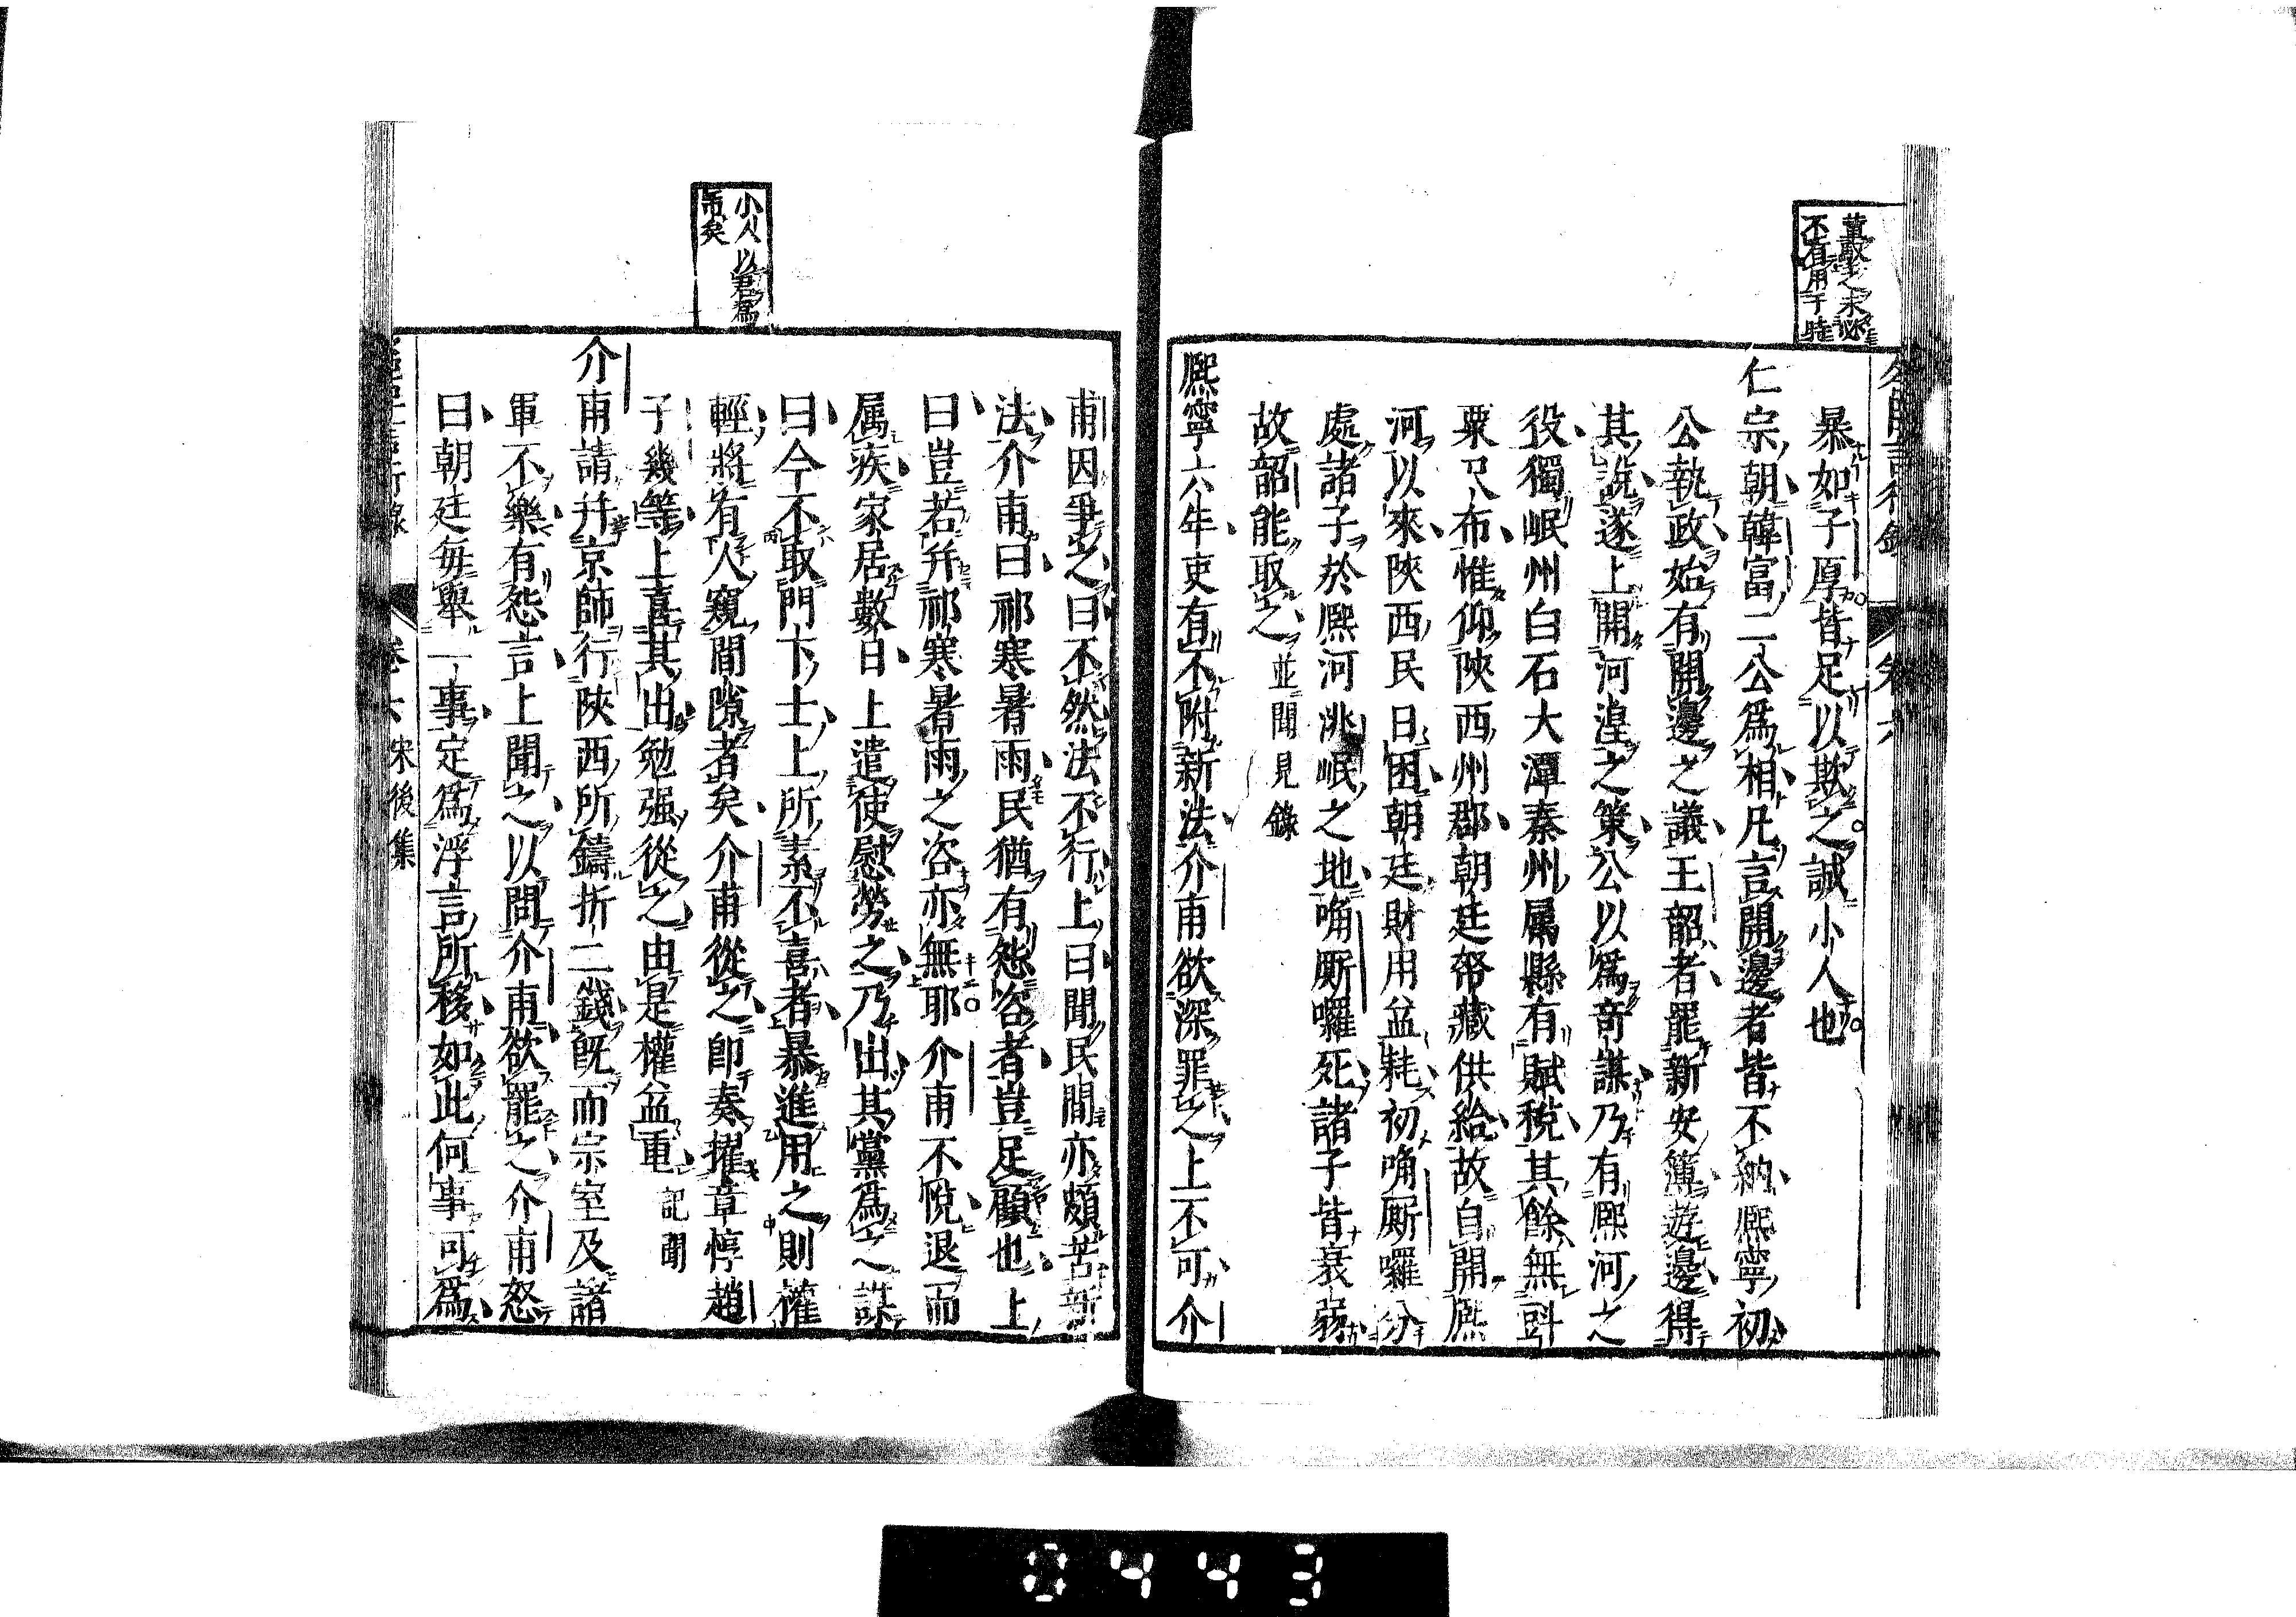 暴如子厚皆足以欺之誠小人也
仁宗朝韓富二公爲相凡言開邊者皆不納熈寧初
公執政始有開邊之議王韶者罷新安簿遊邊得
其說遂上開河湟之策公以爲奇謀乃有熈河之
役獨岷州白石大潭秦州属縣有賦稅其餘無㪷
粟尺布惟仰陝西州郡朝廷帑藏供給故自開熈
河以來陝西民日困朝廷財用益耗初唃厮囉分
處諸子於熈河洮岷之地唃厮囉死諸子皆衰弱
故韶能取之並聞見錄
熈寧六年吏有不附新法介甫欲深罪之上不可介
不有用于時
甫因爭之曰不然法不行上曰聞民間亦頗苦新
法介甫曰祁寒暑雨民猶有怨咨者豈足顧也上
曰豈若并祁寒暑雨之咨亦無耶介甫不悅退而
属疾家居數日上遣使慰勞之乃出其黨爲之謀
曰今不取門下士上所素不喜者暴進用之則權
輕將有人窺間隙者矣介甫從之即奏擢章惇趙
子幾等上喜其出勉强從之由是權益重記聞
介甫請并京師行陝西所鑄折二錢旣而宗室及諸
軍不樂有怨言上聞之以問介甫欲罷之介甫怒
曰朝廷每舉一事定爲浮言所移如此何事可爲
小人以君爲
卷六 宋後集
0443